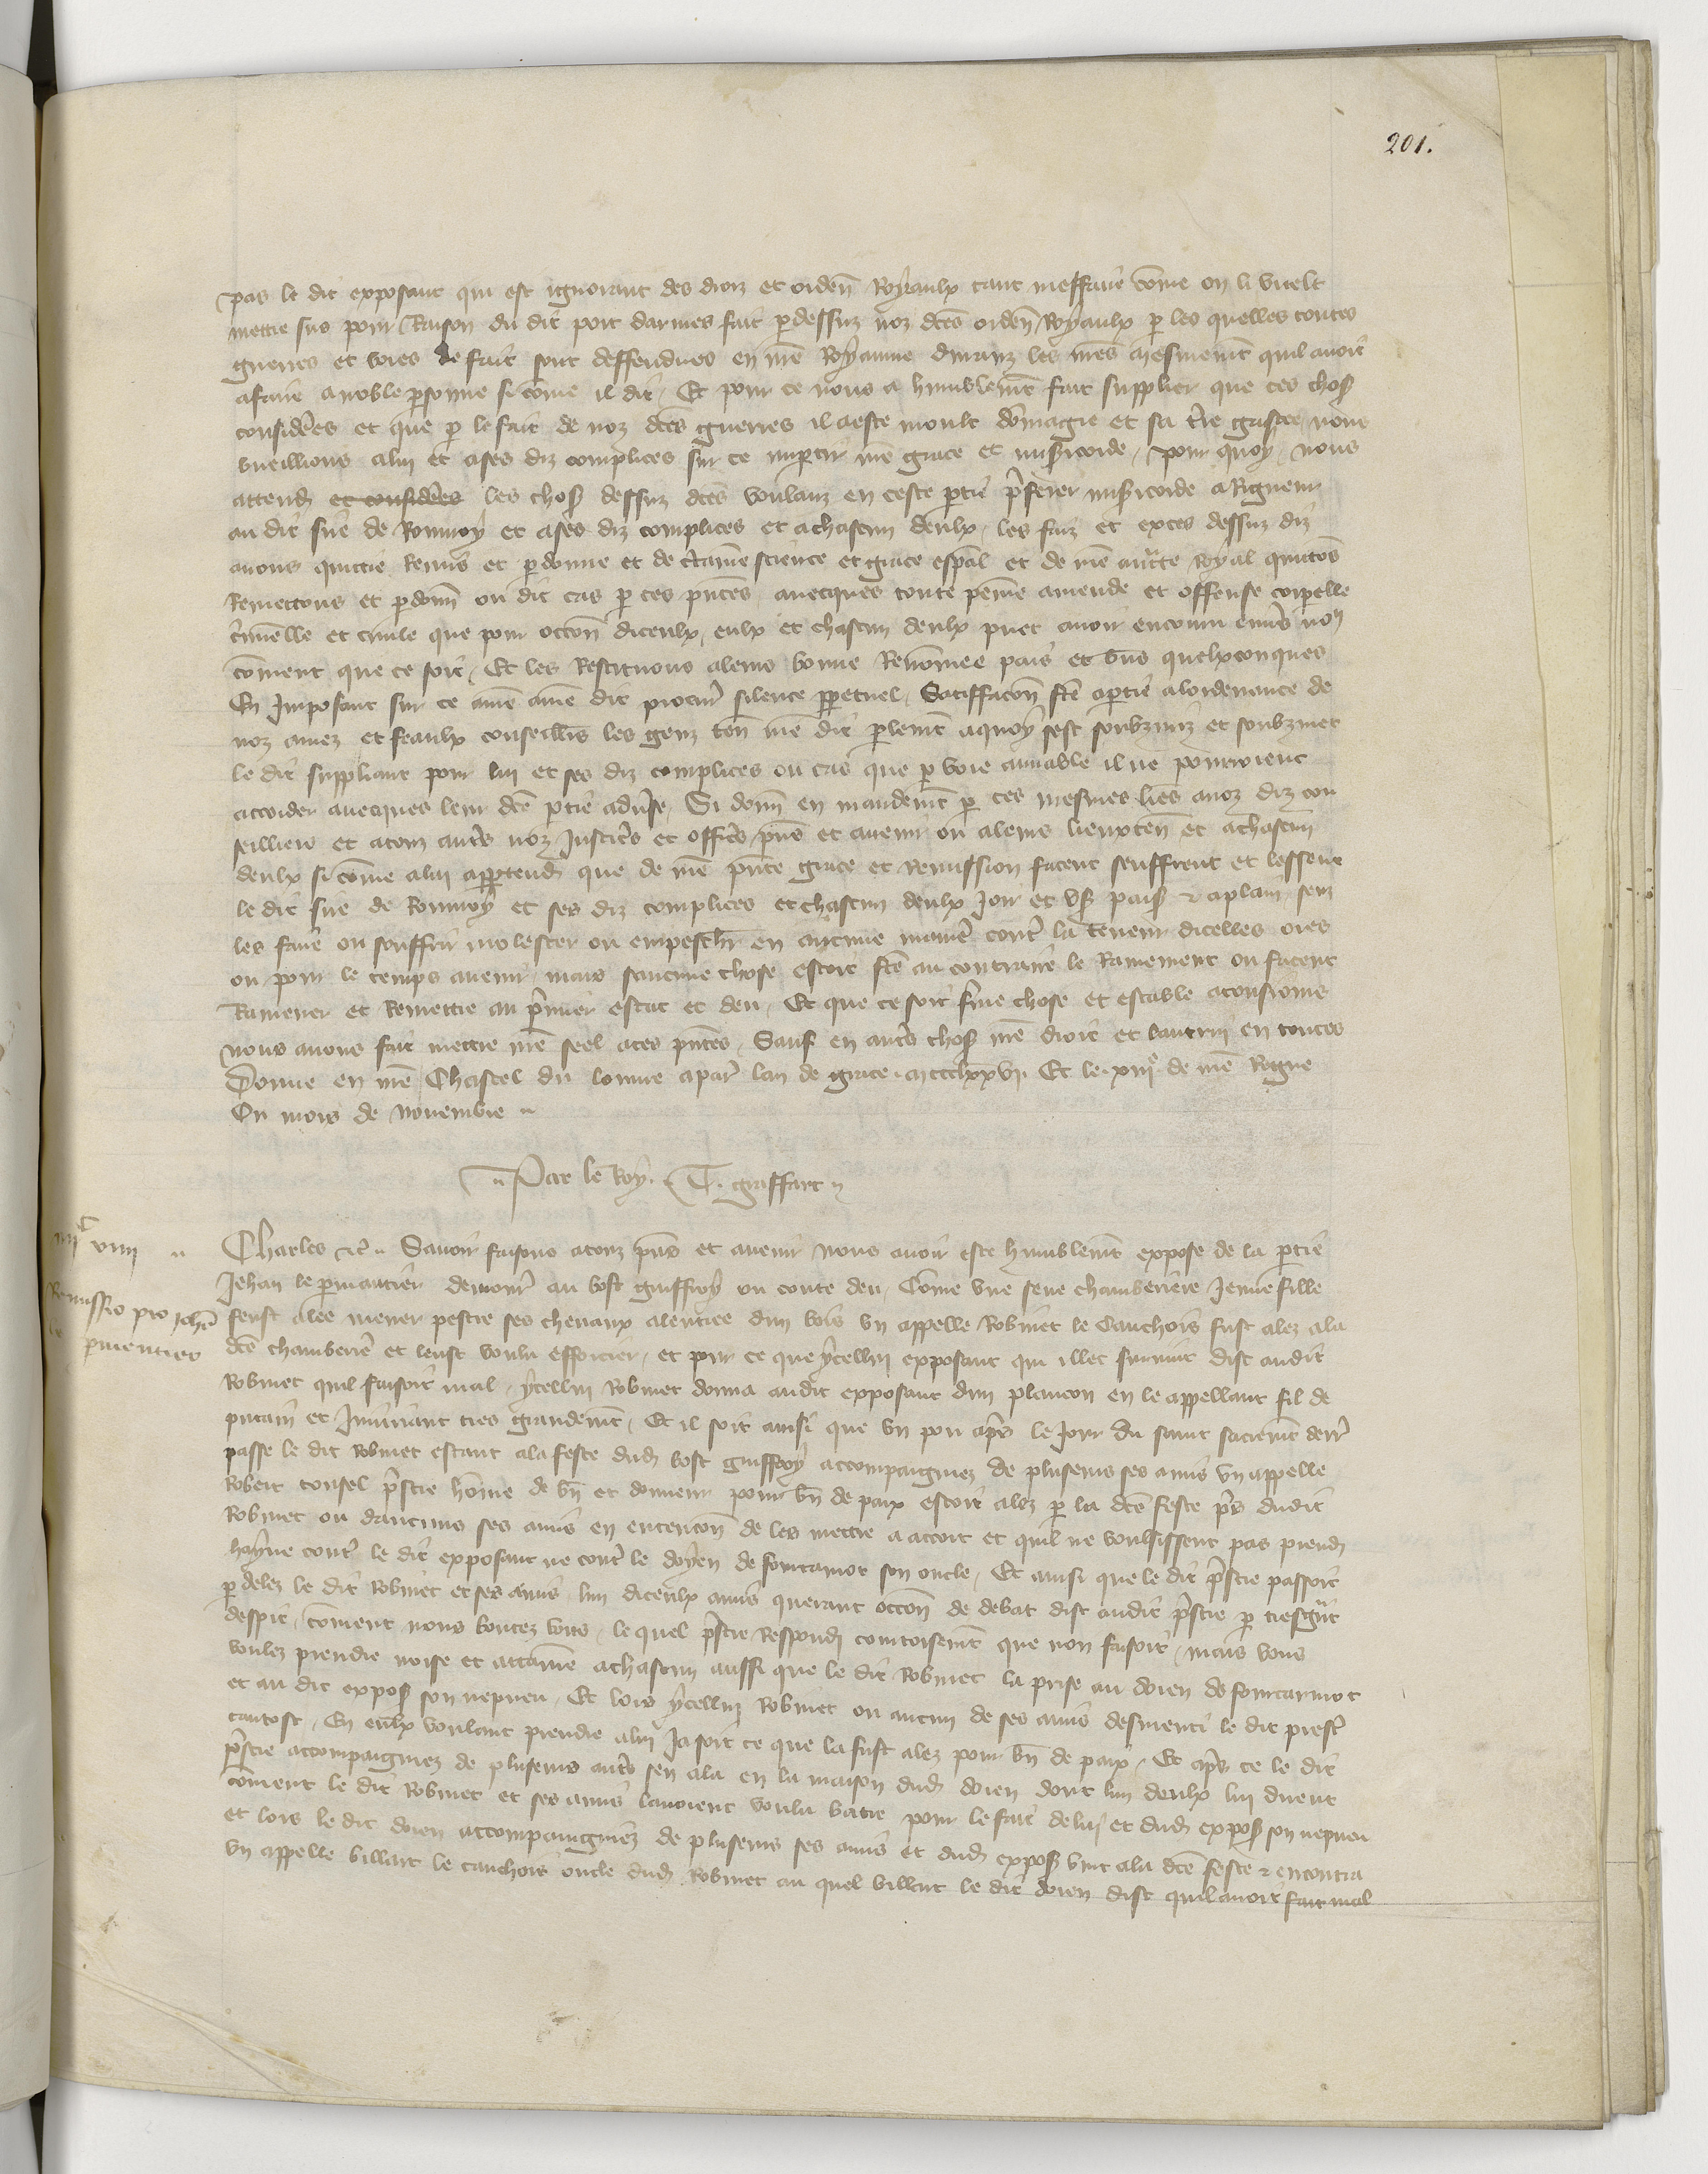 201.
pas le dit exposant qui est ignorant des droiz et orden̄ Royaulx tant meffaire cōme on li vuelt
mettre sus pour Raison du dit port darmes fait p dessuz noz dc̄es orden̄ Royaulx p les quelles toutes
guerres et voies de fait sont deffendues en nr̄e Royaume duranz les nr̄es mesmemt̄ quil avoit
afaire a noble psonne si cōme il dit / Et pour ce nous a humblemt̄ fait supplier que ces chos̄
considēes et que p le fait de noz dc̄es guerres il a este moult dōmagie et sa t̄re gastee nous
vueillions a lui et a ses diz complices sur ce impartir nr̄e grace et mis̄icorde / pour quoy nous
attend̄ et considēes les chos̄ dessuz dc̄es voulanz en ceste ptie p̄ferer mis̄icorde a Rigueur
au dit sire de Romroy et a ses diz complices et a chascun deulx / les faiz et exces dessuz diz
avons quittie Remis et pdonne et de c̄taine science et grace esp̄al et de nr̄e auct̄te Royal quittōs
Remettons et pdonn̄ ou dit cas p ces pn̄tes avecques toute peine amende et offense corpelle
c̄iminelle et civile que pour occōn diceulx, eulx et chascun deulx puet avoir encouru env̄s no9
cōment que ce soit / Et les Restituons a leurs bonne Renōmee pais et bn̄s quelxconques
En Imposant sur ce a nr̄e dit procur̄ silence ppetuel, Satiffacōn fc̄e a ptie a lordenance de
noz amez et feaulx conseillr̄s les genz ten̄ nr̄e dit plemt̄ a quoy sest soubzmiz et soubzmet
le dit suppliant pour lui et ses diz complices ou cas que p voie amiable il ne pourroient
accorder avecques leur dc̄e ptie adūse / Si donn̄ en mandemt̄ p ces mesmes lr̄es a noz diz con
seilliers et a touz aut̄s noz Justic̄s et offic̄s pn̄s et avenir ou a leurs lieuxten̄ et a chascun
deulx si cōme a lui apptend̄ que de nr̄e pn̄te grace et Remission facent seuffrent et lessent
le dit sire de Romroy et ses diz complices et chascun deulx Joir et us̄ paisi⁊ a plain senz
les faire ou souffrir molester ou empeschr̄ en aucune manie cont̄ la teneur dicelles ores
ou pour le temps avenir / mais saucune chose estoit fc̄e au contraire le Ramenent ou facent
Ramener et Remettre au p̄mier estat et deu / Et que ce soit f̄me chose et estable a tousiours
nous avons fait mettre nr̄e seel a ces pn̄tes / Sauf en aut̄s chos̄ nr̄e droit et lautruy en toutes
Donne en nr̄e Chastel du louvre a par̄ lan de grace mccclxxvi. Et le xiiie de nr̄e Regne
Ou mois de novembre
Par le Roy. T. graffart
iiiic viii
Charles ⁊c̄ Savoir faisons a touz pn̄s et avenir nous avoir este humblemt̄ expose de la ptie
Remissio pro Joh̄e
le pmentier
Jehan le pmantier demour̄ au bost guiffroy ou conte deu / Cōme une sene chamberiere Jeune fille
feust alee mener pestre ses chevaux a lentree dun bois un appelle Robinet le Cauchois fust alez a la
dc̄e chamberie et leust voulu efforcier / et pour ce que ycellui exposant qui illec survint dist audit
Robinet quil faisoit mal / ycellui Robinet donna audit exposant dun plancon en le appellant fil de
putain et Iniuriant tres grandemt̄ / Et il soit ainsi que un pou apr̄s le Jour du saint sacremt̄ derr̄
passe le dit Robinet estant a la feste dud̄ bost guiffroy accompaigniez de plusieurs ses amis un appelle
Robert tousel p̄stre hōme de bn̄ et donneur pour bn̄ de paix estoit alez p la dc̄e feste pr̄s dudit
Robinet ou daucuns ses amis en entencōn de les mettre a accort et quil ne voulsissent pas prend̄
hayne cont̄ le dit exposant ne cont̄ le doyen de fontarmot son oncle / Et ainsi que le dit p̄stre passoit
p delez le dit Robinet et ses amis lun diceulx amis querant occōn de debat dist audit p̄stre p tresgr̄t
despit / cōment nous boutez vous / le quel p̄stre Respond̄ courtoisemt̄ que non faisoit / mais vous
voulez prendre noise et attaine a chascun aussi que le dit Robinet la prise au doien de fontarmot
et au dit expos̄ son nepveu / Et lors ycellui Robinet ou aucun de ses amis desmenti le dit prest̄
tantost / En eulx voulant prendre a lui Ja soit ce que la fust alez pour bn̄ de paix / Et apr̄s ce le dit
p̄stre accompaigniez de plusieurs aut̄s sen ala en la maison dud̄ doien dont lun deulx lui dirent
cōment le dit Robinet et ses amis lavoient voulu batre pour le fait de lui et dud̄ expos̄ son nepveu
et lors le dit doien accompaigniez de plusieurs ses amis et dud̄ expos̄ vint a la dc̄e feste ⁊ encontra
un appelle billart le cauchois oncle dud̄ Robinet au quel billart le dit doien dist quil avoit fait mal